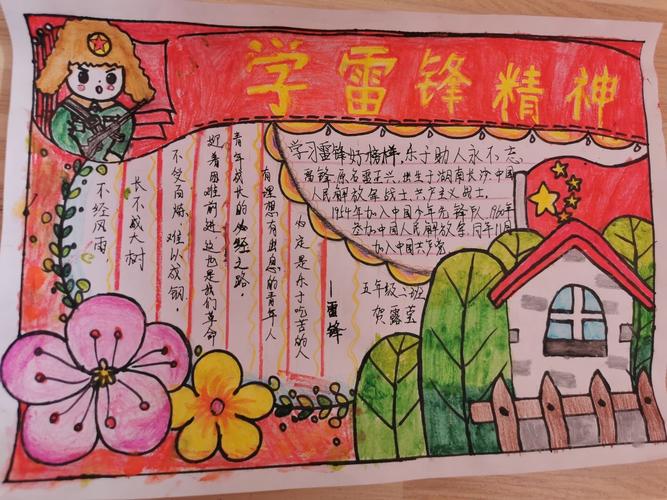 学雷锋精神
学习雷锋好榜样,乐于助人永不忘
雷锋,原名雷正兴,出生于湖南长沙 中国
人民解放军战士,共产主义战士。
1964年加入中国少年先锋队,1960年
参加中国人民解放军.同年11月
加入中国共产党
五年级二班
贺露莹
不经风雨
长不成大树
不受百炼 难以成钢。
迎着困难前进 这也是我们革命
青年成长的必经之路。
有理想有出息的青年人
必定是乐于吃苦的人
——雷锋